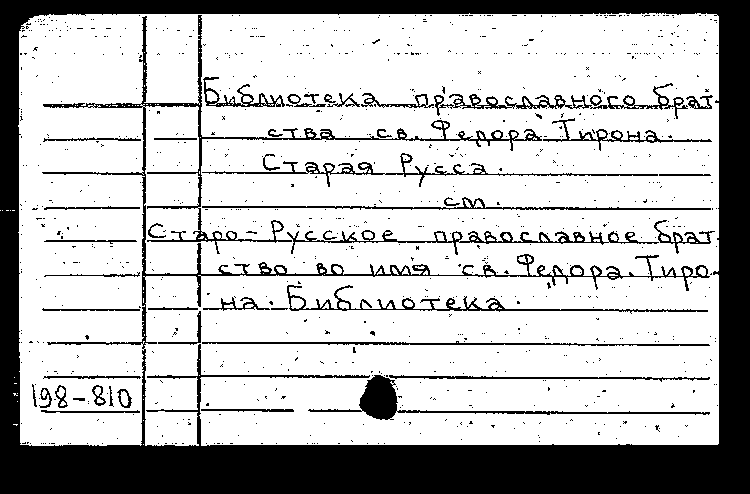 Библиотека православного брат-
ства св. Федора Тирона.
Старая Русса.
см.
Старо-Русское православное брат-
ство во имя св. Федора Тиро-
на. Библиотека.
198-810